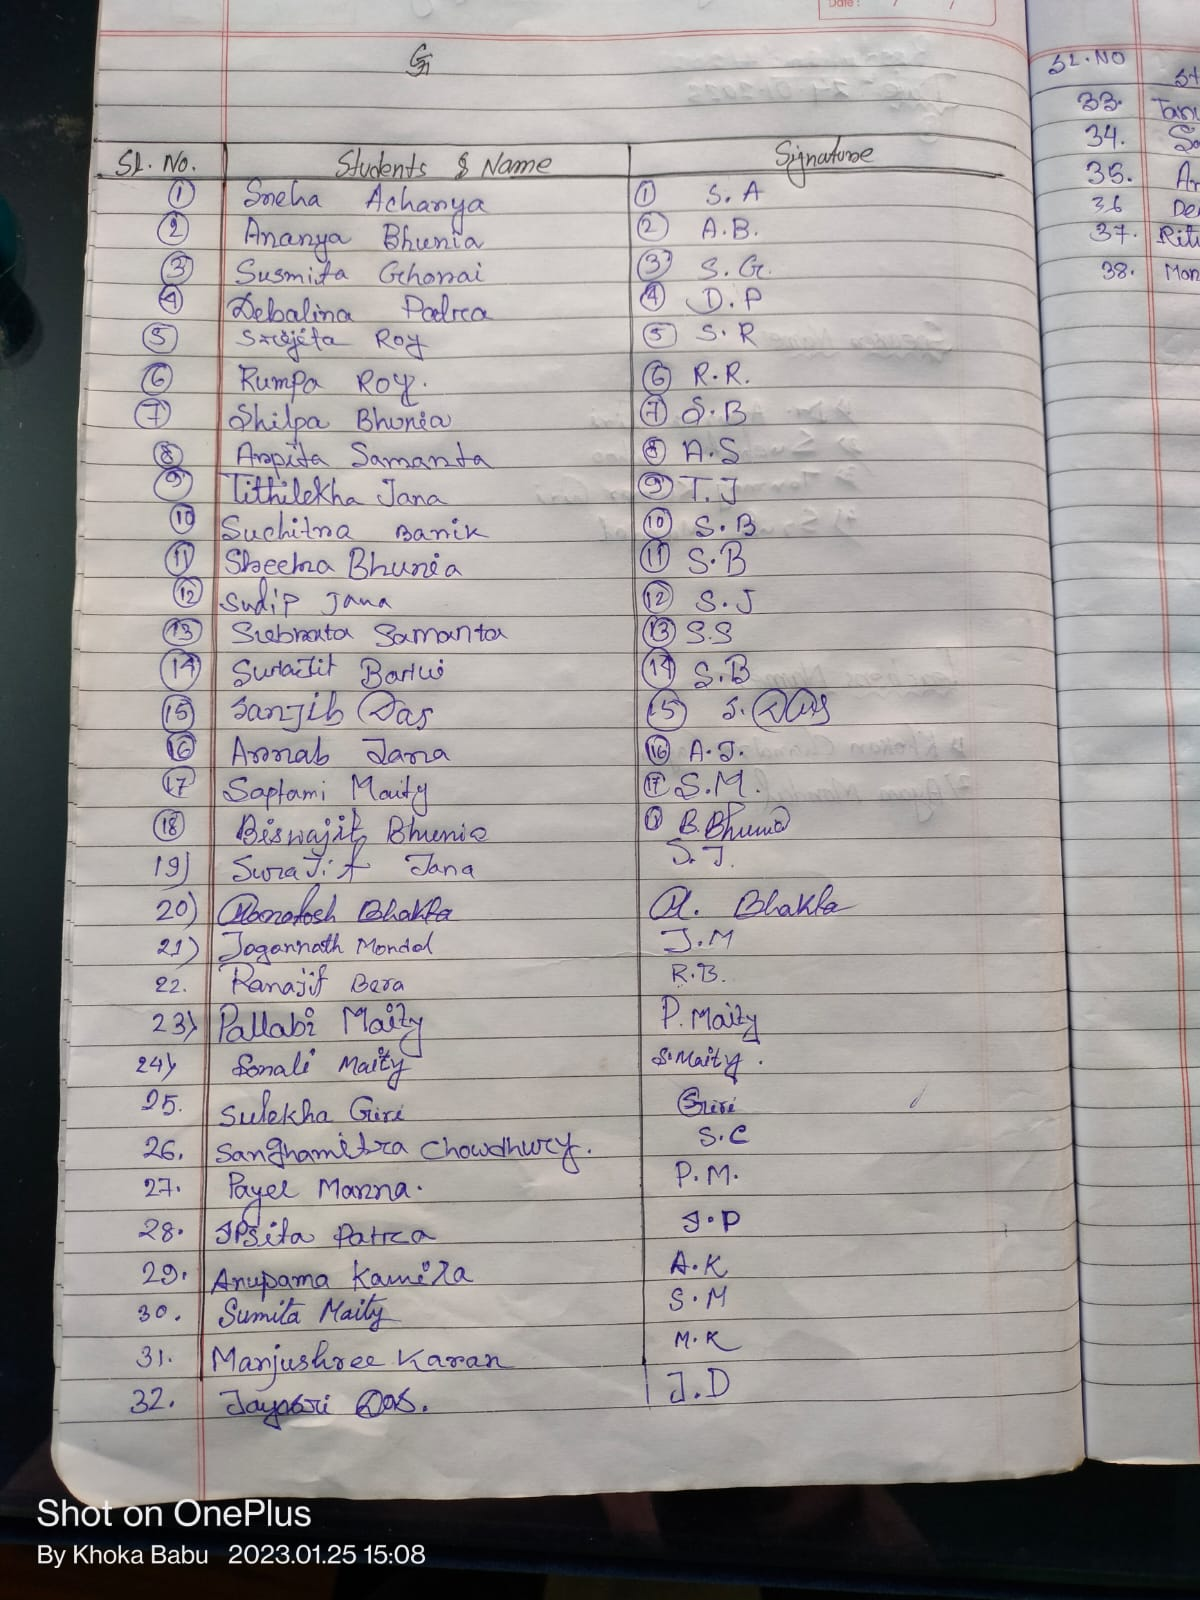 Date: / /
Sl. No. Students & Name Signature
1 Sneha Acharya 1 S. A
2 Ananya Bhunia 2 A.B.
3 Susmita Ghorai 3 S. G.
4 Debalina Patra 4 D.P
5 Srijita Roy 5 S.R
6 Rumpa Roy. 6 R.R.
7 Shilpa Bhunia 7 S.B
8 Arpita Samanta 8 A.S
9 Tithilekha Jana 9 T.J
10 Suchitra Banik 10 S.B
11 Bhunia 11 S.B
12 Sudip Jana 12 S.J
13 Samanta 13 S.S
14 Surajit 14 S.B
15 Sanjib Das 15 S. DAS
16 Arnab Jana 16 A.J.
17 Saptami Maity 17 S.M.
18 Biswajit Bhunia B. Bhunia
19) Surajit Jana S.J.
20) Bhakta M. Bhakta
21) Jagannath Mondal J.M
22. Ranajit Bera R.B.
23) Pallabi Maity P. Maity
24) Sonali Maity S. Maity.
25. Sulekha Giri Giri
26. Sanghamitra Chowdhury. S.C
27. Payel Manna. P.M.
28. Ipsita Patra I.P
29. Anupama Kamila A.K
30. Sumita Maity S.M
31. Manjushree Karan M.K
32. Jayasri Das. J.D
SL.NO
33.
34.
35.
36
37.
38.
Shot on OnePlus
By Khoka Babu 2023.01.25 15:08